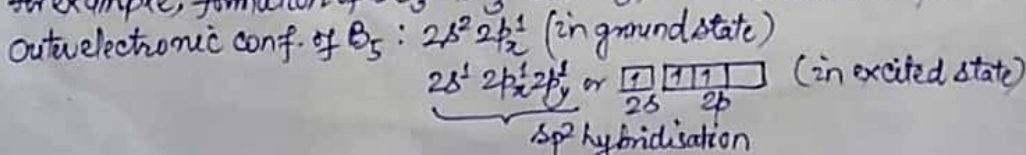 for example, formation of
Outer electronic conf. of B₅ : 2s² 2pₓ¹ (in ground state)
2s¹ 2pₓ¹ 2pᵧ¹ or 1 1 1 (in excited state)
2s 2p
sp² hybridisation